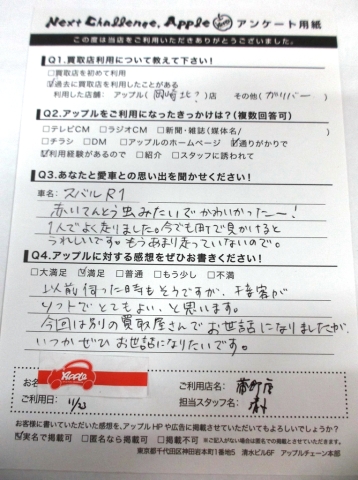 Next Challenge, Apple アンケート用紙
この度は当店をご利用いただきありがとうございました。
Q1.買取店利用について教えて下さい!
□買取店を初めて利用
☑過去に買取店を利用したことがある
利用した店舗: アップル(岡崎北?)店 その他(ガリバー)
Q2.アップルをご利用になったきっかけは?(複数回答可)
□テレビCM □ラジオCM □新聞・雑誌(媒体名/ )
□チラシ □DM □アップルのホームページ ☑通りがかりで
☑利用経験があるので □紹介 □スタッフに誘われて
Q3.あなたと愛車との思い出を聞かせてください!
車名: スバルR1
赤いてんとう虫みたいでかわいかったー!
1人でよく走りました。今でも町で見かけると
うれしいです。もうあまり走っていないので。
Q4.アップルに対する感想をぜひお書きください!
□大満足 ☑満足 □普通 □もう少し □不満
以前伺った時もそうですが、接客が
ソフトでとてもよい、と思います。
今回は別の買取屋さんでお世話になりましたが、
いつかぜひお世話になりたいです。
お名
Apple
ご利用店名:
ご利用日: 11/23
担当スタッフ名:
お客様に書いていただいた感想を、アップルHPや広告に掲載させていただいてもよろしいでしょうか?
☑実名で掲載可 □匿名なら掲載可 □掲載不可 ※ご記入がない場合は匿名での掲載とさせていただきます。
東京都千代田区神田岩本町1番地5 清水ビル6F アップルチェーン本部